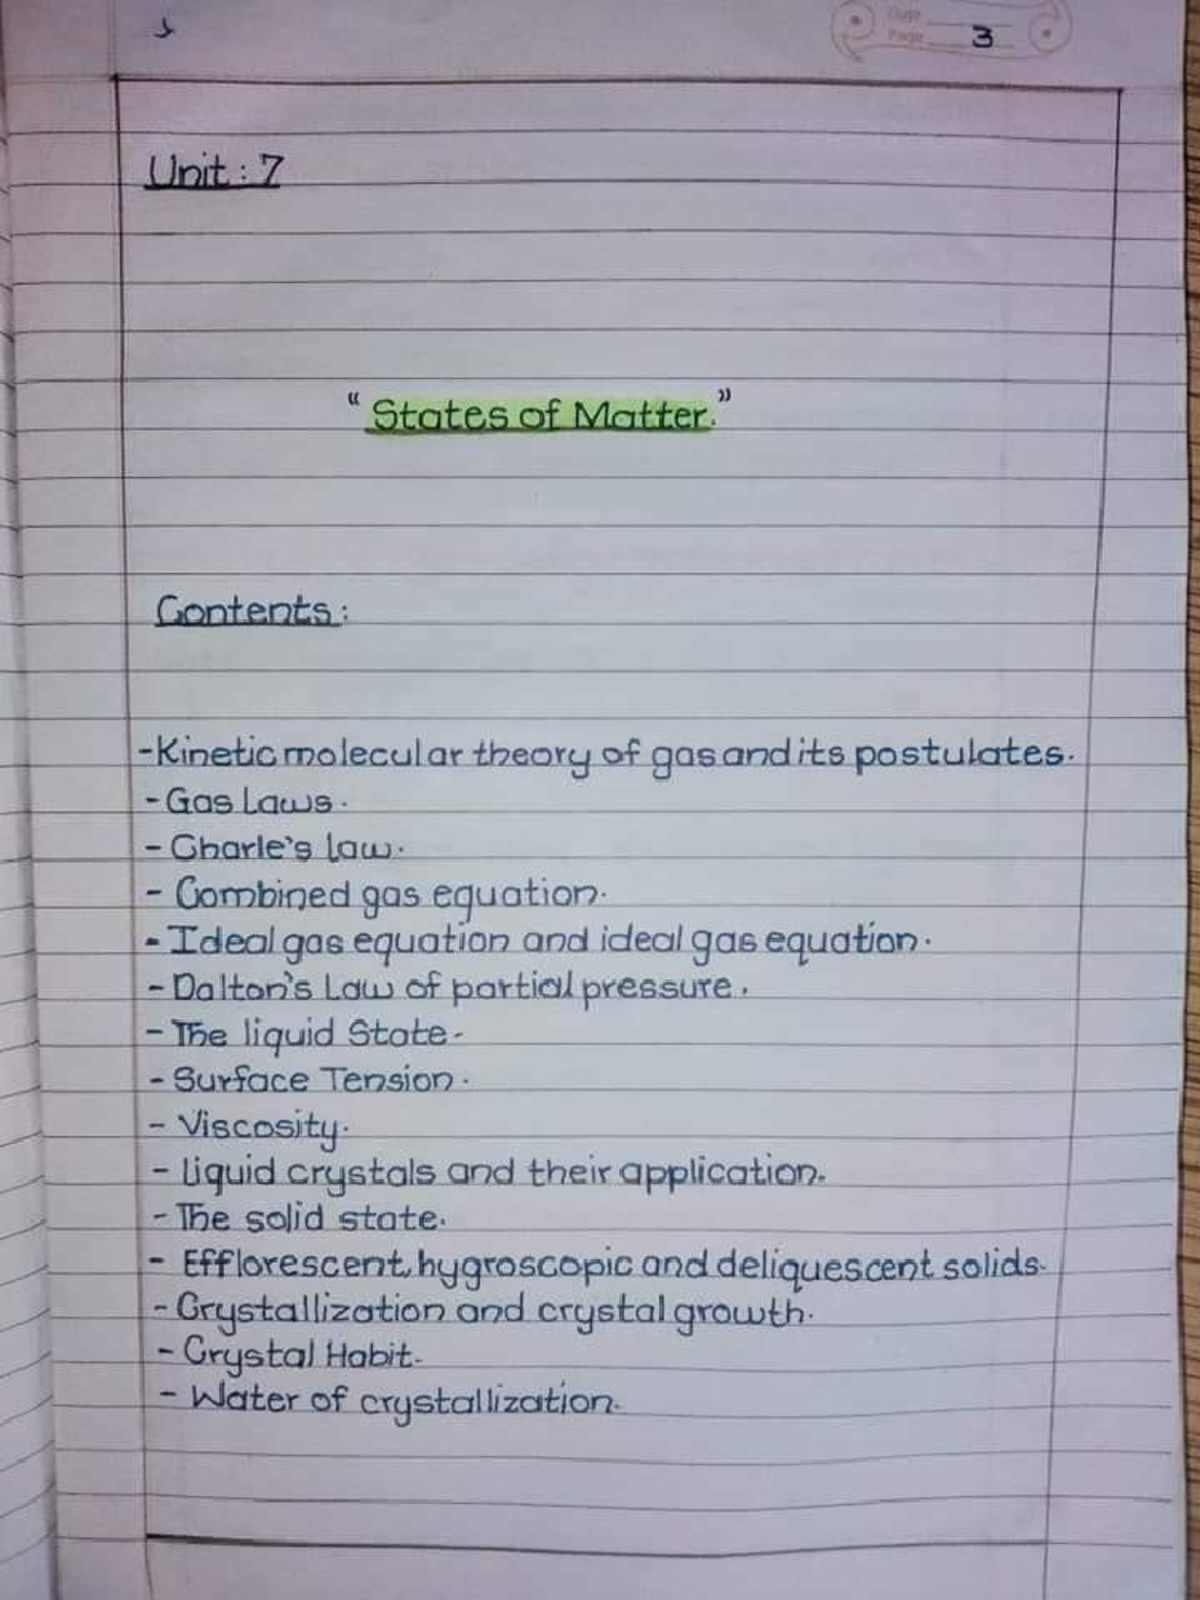 Date
Page 3
Unit : 7
“ States of Matter. ”
Contents :
- Kinetic molecular theory of gas and its postulates.
- Gas Laws.
- Charle's law.
- Combined gas equation.
- Ideal gas equation and ideal gas equation.
- Dalton's Law of partial pressure.
- The liquid State.
- Surface Tension.
- Viscosity.
- liquid crystals and their application.
- The solid state.
- Efflorescent, hygroscopic and deliquescent solids.
- Crystallization and crystal growth.
- Crystal Habit.
- Water of crystallization.